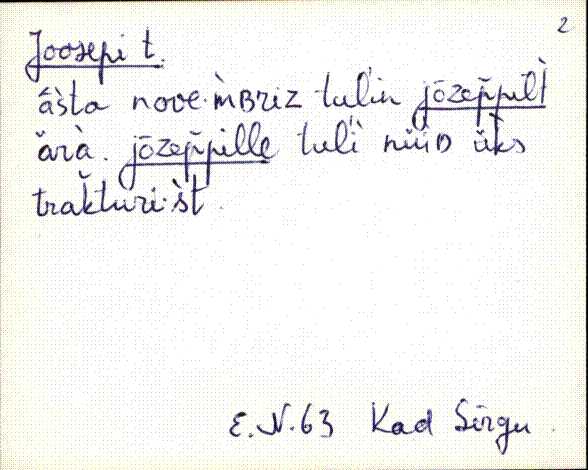 2
Joosepi t.
âs̀ta nove·m̀ʙriz tulin jōzep̆pil̀t
ăr̀a. jōzep̆pille tuli nüüᴅ üks
trak̆turi·s̀t.
E.N.63 Kad Sirgu